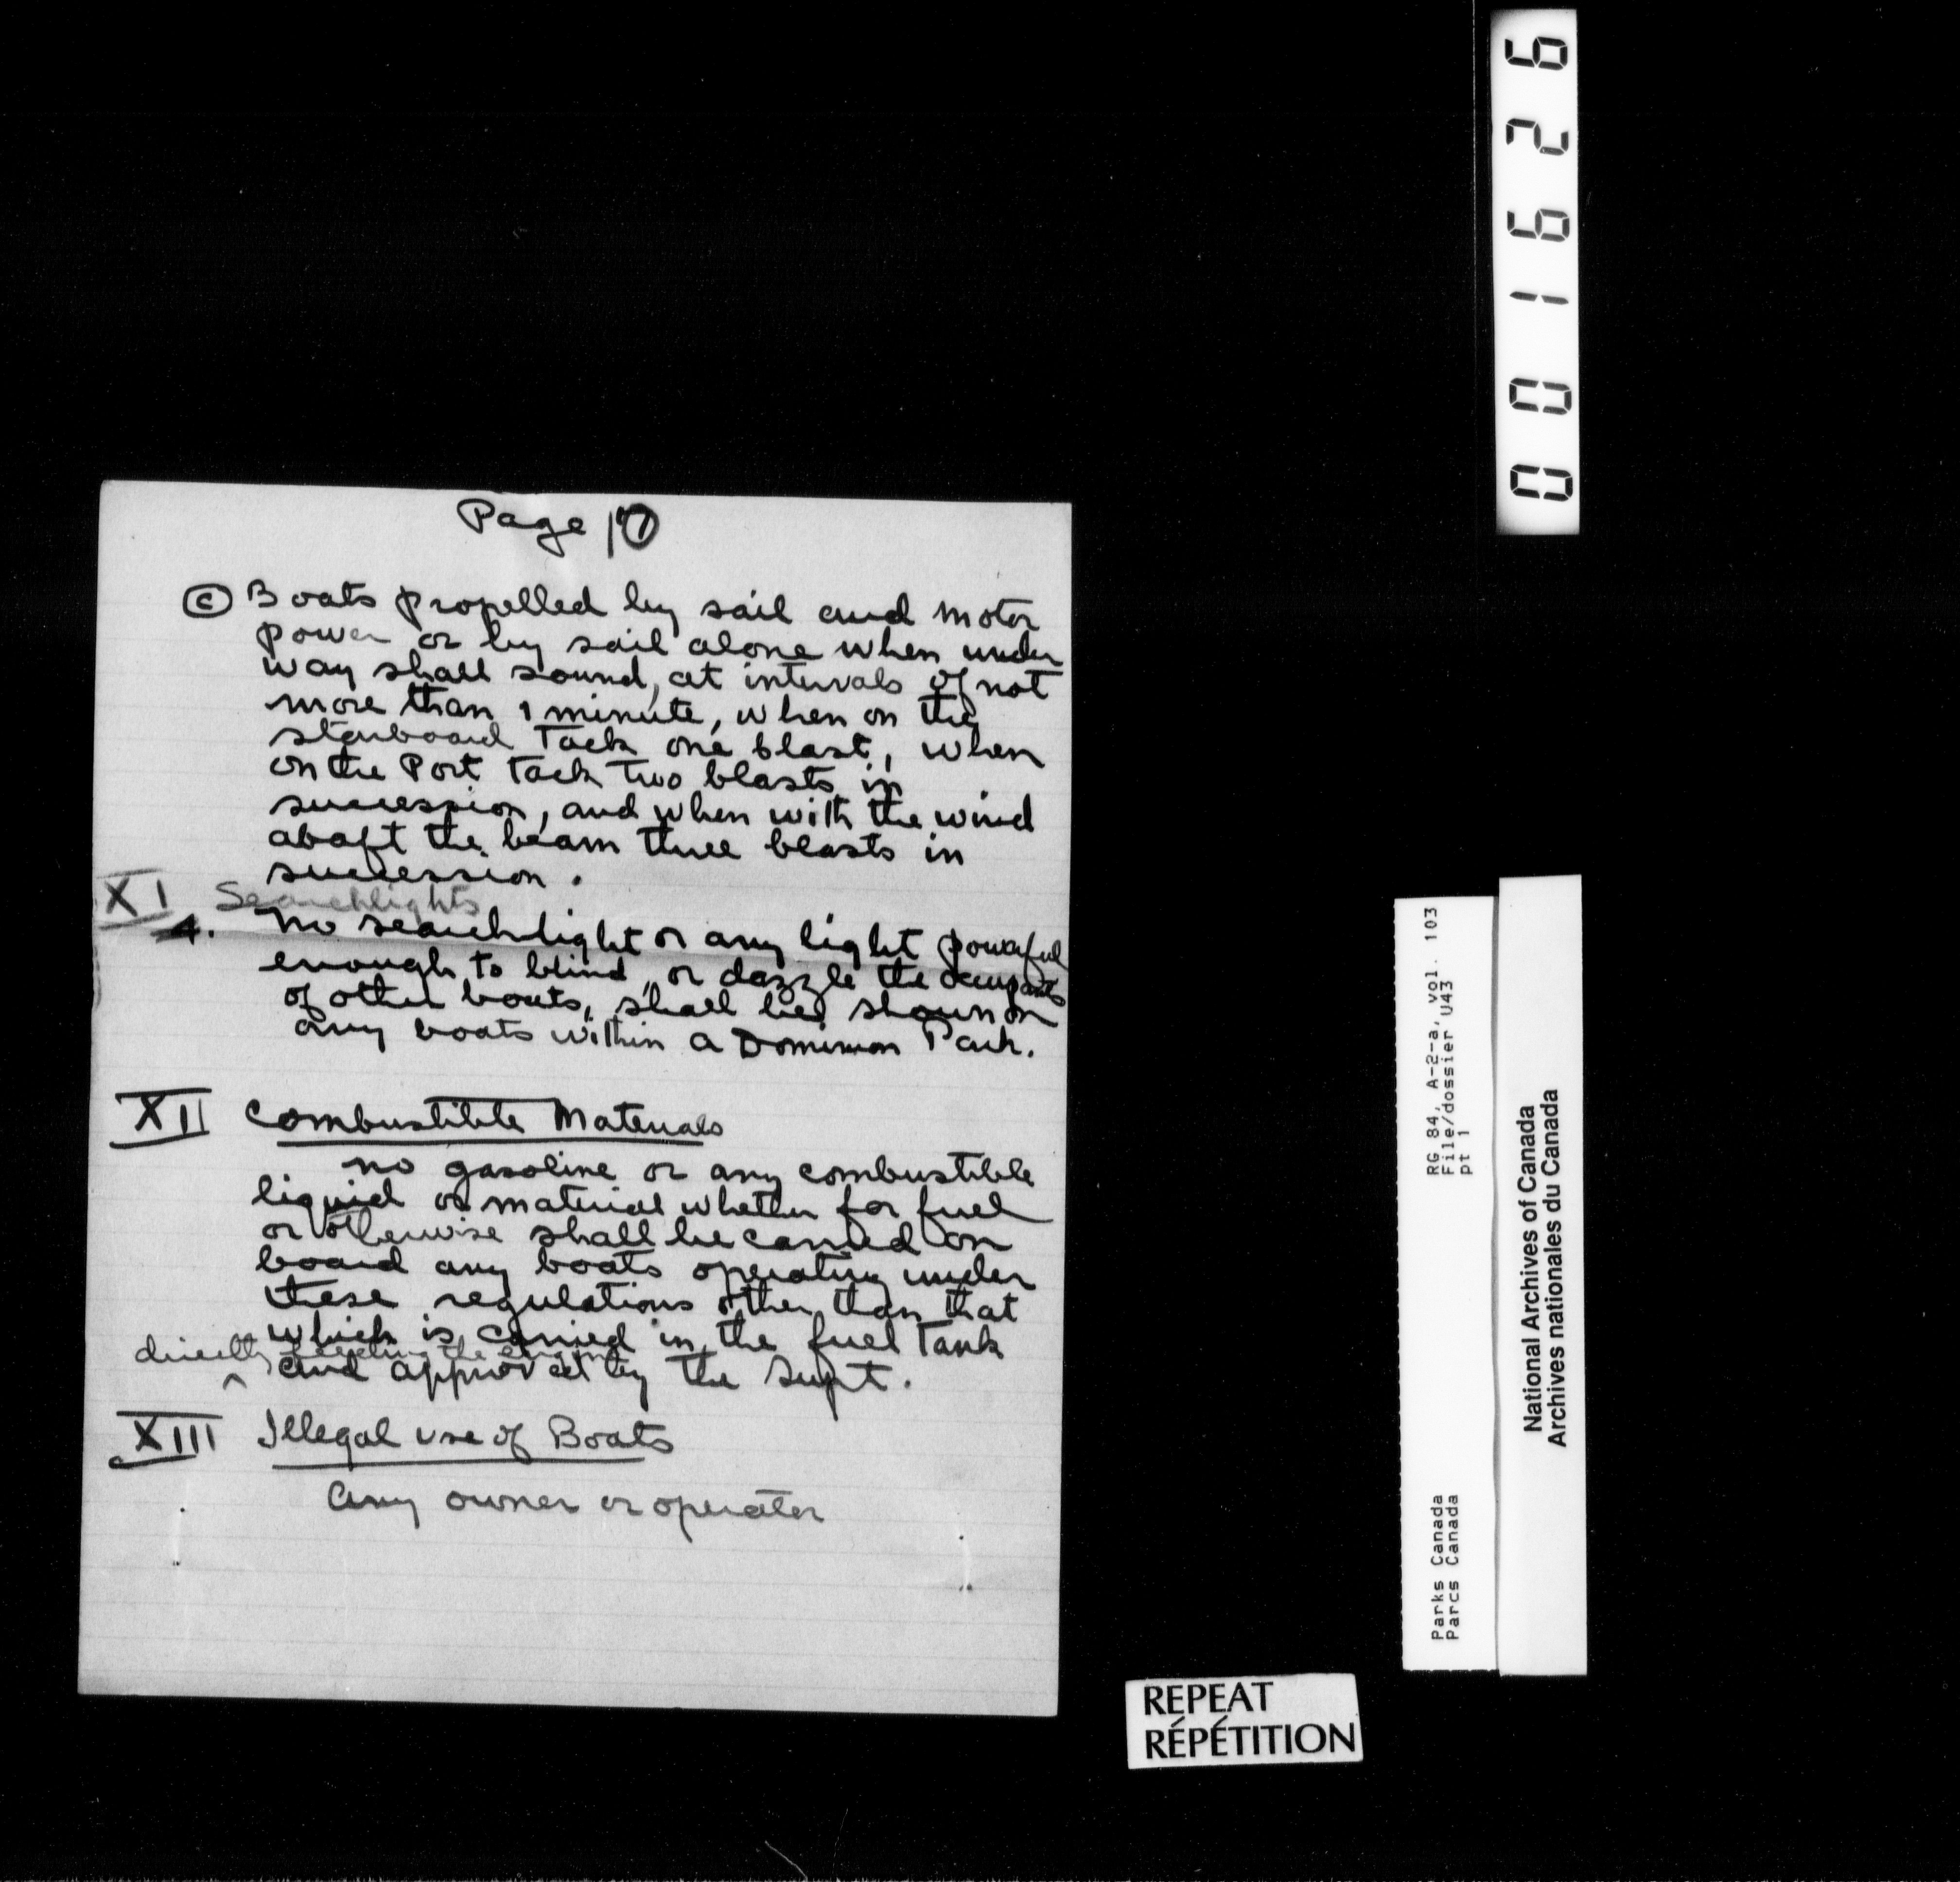 Page 10
(c) Boats propelled by sail and motor
power or by sail alone when under
way shall sound, at intervals of not
more than 1 minute, when on the
starboard Tack one blast, when
on the Port Tack Two blasts in
succession, and when with the wind
abaft the beam three blasts in
succession.
XI Searchlights
4. No searchlight or any light powerful
enough to blind, or dazzle the occupants
of other boats, shall be shown on
any boats within a Dominion Park.
XII Combustible Materials
No gasoline or any combustible
liquid or material whether for fuel
or otherwise shall be carried on
board any boats operating under
these regulations other than that
which is carried in the fuel Tank
directly feeding the engine
and approved by the Supt.
XIII Illegal use of Boats
Any owner or operator
001626
RG 84, A-2-a, vol. 103
File/dossier U43
pt 1
Parks Canada
Parcs Canada
National Archives of Canada
Archives nationales du Canada
REPEAT
RÉPÉTITION